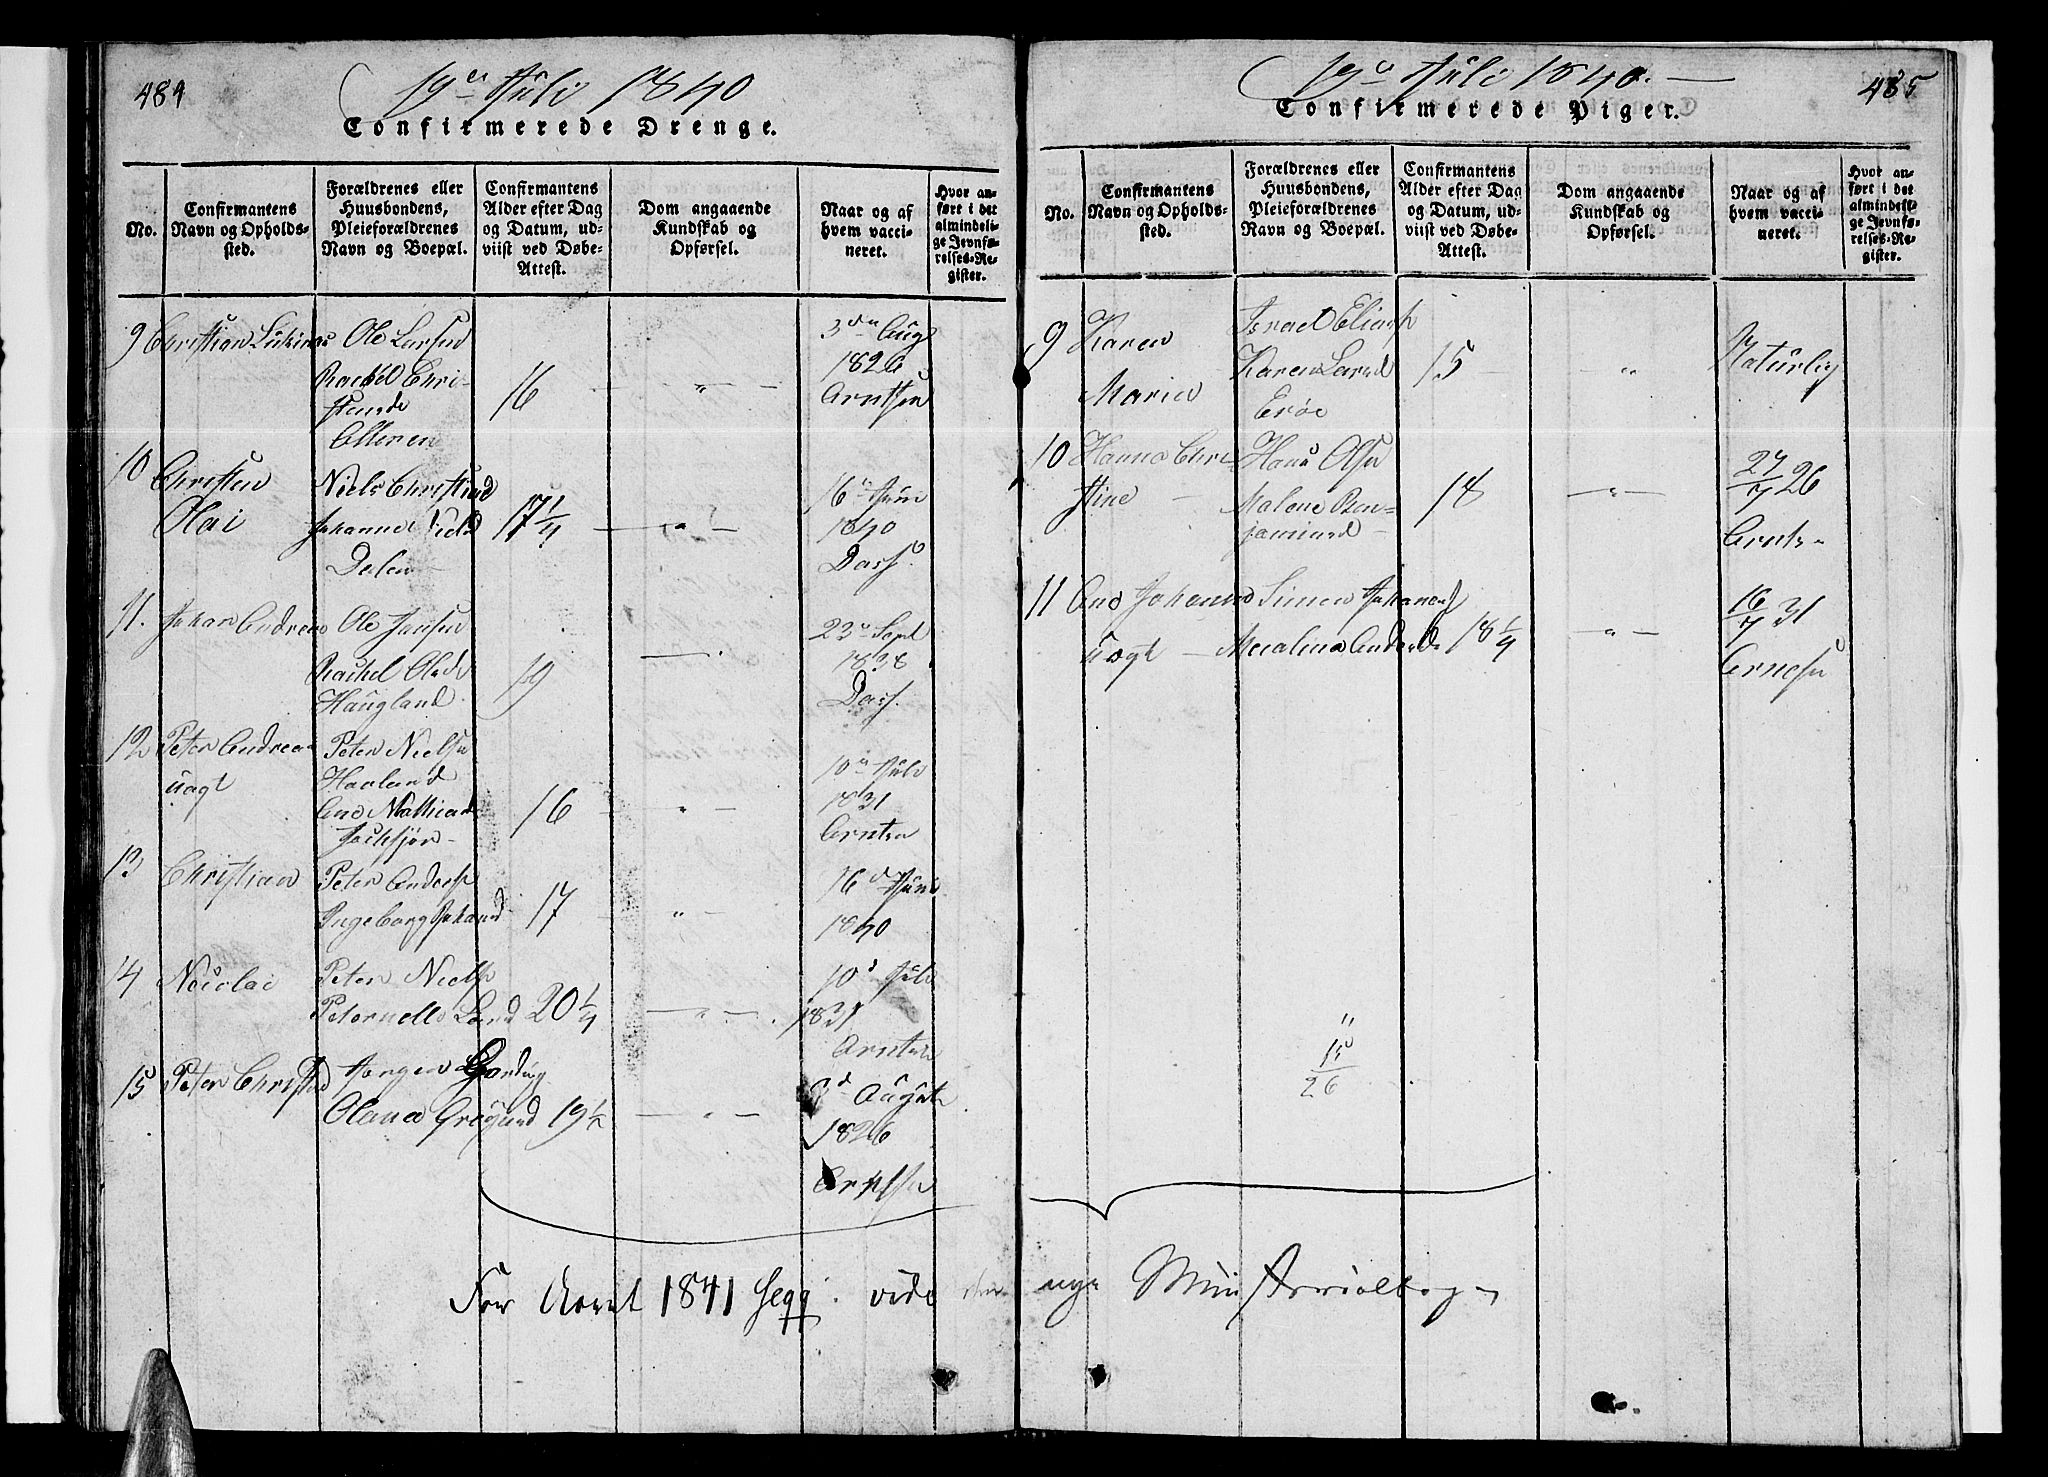 484
19de Juli 1840
Confirmerede Drenge.
No.
Confirmantens
Navn og Opholds-
sted.
Forældrenes eller
Huusbondens,
Pleieforældrenes
Navn og Boepæl.
Confirmantens
Alder efter Dag
og Datum, ud-
viist ved Døbe-
Attest.
Dom angaaende
Kundskab og
Opførsel.
Naar og af
hvem vacci-
neret.
Hvor an-
ført i det
almindeli-
ge Jevnfø-
relses-Re-
gister.
9 Christian
Ole Larsen
Rachel Chri-
stensd
16
— " —
3die Aug
1826
Arntsen
10
Christen
Olai
Niels Christians
Johanna Nielsd
Dalen
17 1/4
— " —
16 Juni
1840
Dass.
11. Johan Andreas
Ole Jansen
Rachel Olsd
Haugland
19
23 Sept
1838
Dass.
12 Peter Andreas
uægt
Peter Nielsen
Havland
Ane Mathiasd
16
— " —
10 Juli
1831
Arntsen
13
Christian
Peter Anders
Ingeborg Johansd
17
— " —
16d Juni
1840
14 Nicolai
Peter Niels
Petornelle Larsd
20 1/4
— " —
10d Juli
1831
Arntsen
15 Peter Christian
Jørgen
Olava
19 1/2
— " —
3d August
1826
Arntsen
For Aaret 1841 seqq: vide den nye Ministerialbog
19de Juli 1840.
485
Confirmerede Piger.
No.
Confirmantens
Navn og Opholds-
sted.
Forældrenes eller
Huusbondens,
Pleieforældrenes
Navn og Boepæl.
Confirmantens
Alder efter Dag
og Datum, ud-
viist ved Døbe-
Attest.
Dom angaaende
Kundskab og
Opførsel.
Naar og af
hvem vacci-
neret.
Hvor an-
ført i det
almindeli-
ge Jevnfø-
relses-Re-
gister.
9 Karen
Maria
Israel Elias
Karen Larsd
Erøe
15
— " —
Naturlig
10 Hanna Chri-
stine
Hans Olsen
Malene Ben-
jaminsd
18
— " —
27/7 26
Arnts
11 Ane Johansd
uægt
Simon Johanes
Andersd
18 1/4
— " —
16/7 31
Arntsen
"
15
26